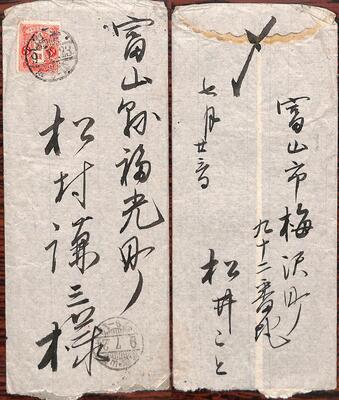 富山縣福光町
松村謙三様
富山市梅沢町
九十二番地
松井こと
七月廿三日